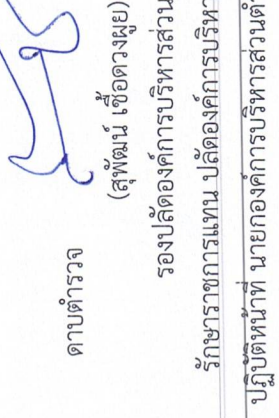 ดาบตำรวจ
(สุพัฒน์ เชื้อดวงผุย)
รองปลัดองค์การบริหารส่วน
รักษาราชการแทน ปลัดองค์การบริหา
ปฏิบัติหน้าที่ นายกองค์การบริหารส่วนตำ